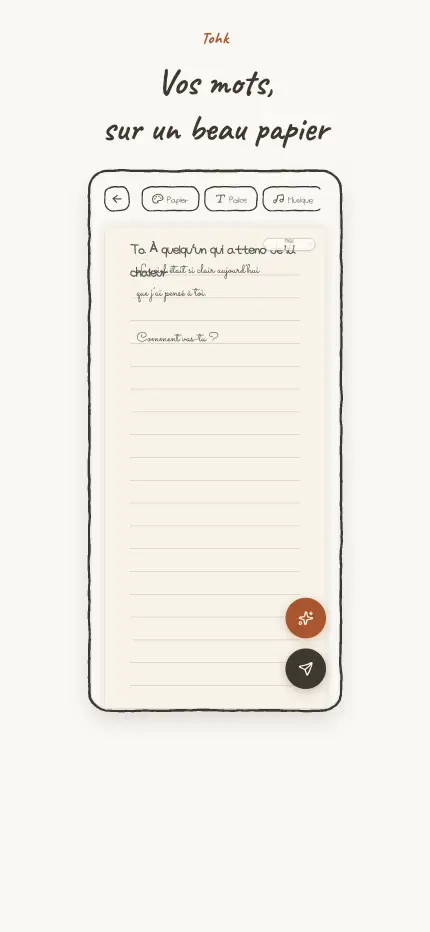 Tohk
Vos mots,
sur un beau papier
Papier
Police
Musique
To. À quelqu'un qui attend de la
chaleur
était si clair aujourd'hui
que j'ai pensé à toi.
Comment vas-tu ?